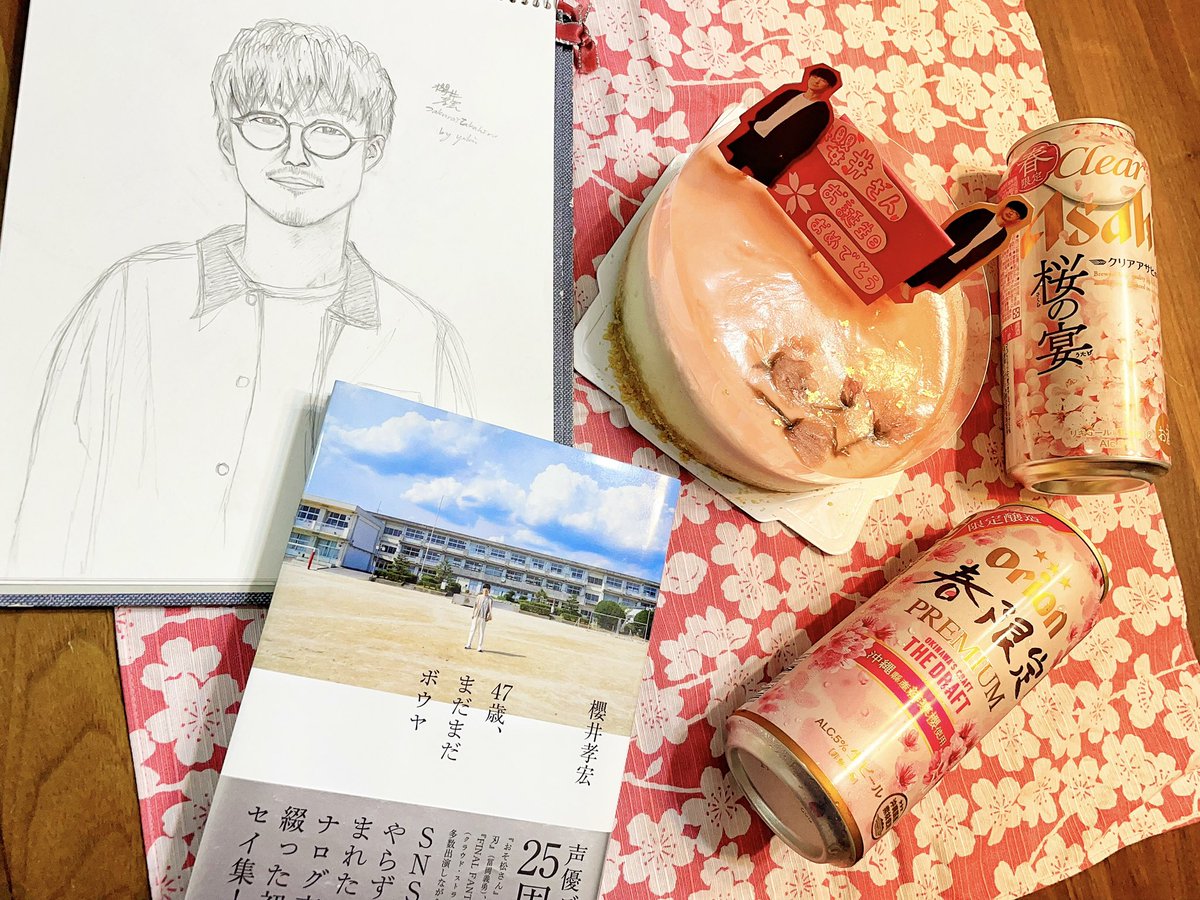 櫻井
孝宏
Sakurai Takahiro
by yuki
櫻井さん
お誕生日
おめでとう
春
限定
Clear
Asahi
クリアアサヒ
桜の宴
うたげ
限定醸造
Orion
春限定
PREMIUM
THE DRAFT
ALC.5%
櫻井孝宏
47歳、
まだまだ
ボウヤ
声優
25周
『おそ松さん』
刃』(冨岡義勇)、
『FINAL FANT
(クラウド・ストラ
多数出演しなが
SNS
やらず
まれた
ナログ
綴った初
セイ集